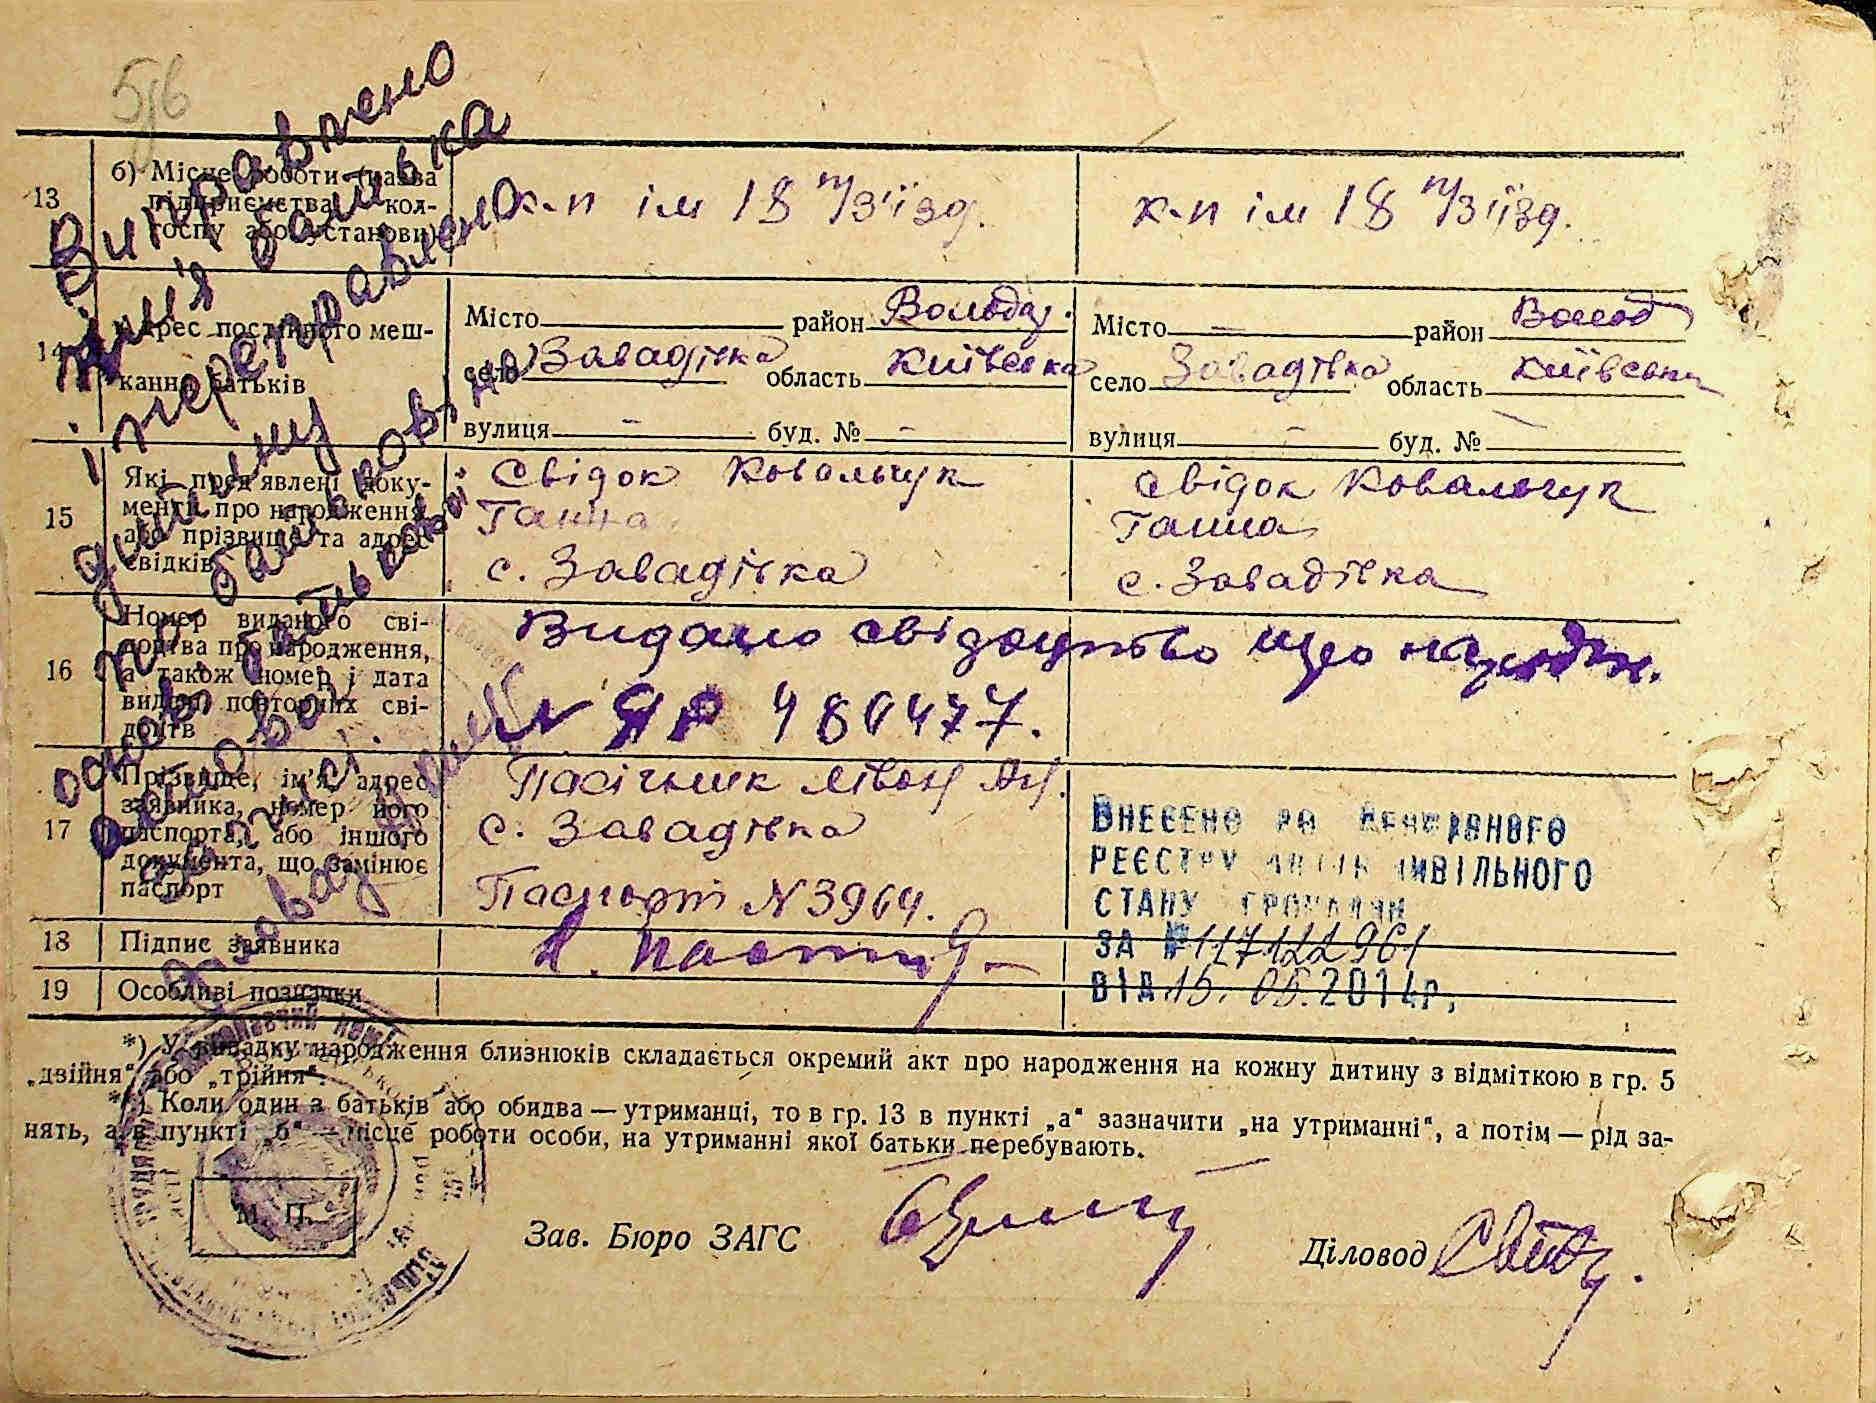 5/в
13
б) Місце роботи (назва
підприємства кол-
госпу або установи)
к-п ім 18 п/зʼїзд.
к-п ім 18 п/зʼїзд.
14
Адрес постійного меш-
кання батьків
Місто район Володар.
село Завадівка область Київська
вулиця - буд. № -
Місто - район Волод
село Завадівка область Київська
вулиця - буд. №
15
Які пред'явлені доку-
менти про народження
або прізвище та адрес
свідків
Свідок Ковальчук
Ганна
с. Завадівка
Свідок Ковальчук
Ганна
с. Завадівка
16
Номер виданого сві-
доцтва про народження,
а також номер і дата
видачі повторних сві-
доцтв
Видано свідоцтво
N ЯР 480477.
17
Прізвище, ім'я, адрес
заявника, номер його
паспорта, або іншого
документа, що замінює
паспорт
Пасічник
с. Завадівка
Паспорт N 3964.
ВНЕСЕНО ДО ДЕРЖАВНОГО
РЕЄСТРУ АКТІВ ЦИВІЛЬНОГО
СТАНУ ГРОМАДЯН
ЗА № 117122961
ВІД 15. 05. 2014р.
18
Підпис заявника
19
Особливі позначки
Виправлено
ім'я батька
і перетравлено
дитину
по батькові
*) У випадку народження близнюків складається окремий акт про народження на кожну дитину з відміткою в гр. 5
„двійня“ або „трійня“.
**) Коли один з батьків або обидва — утриманці, то в гр. 13 в пункті „а“ зазначити „на утриманні“, а потім — рід за-
нять, а в пункті „б“ — місце роботи особи, на утриманні якої батьки перебувають.
М. П.
Зав. Бюро ЗАГС
Діловод